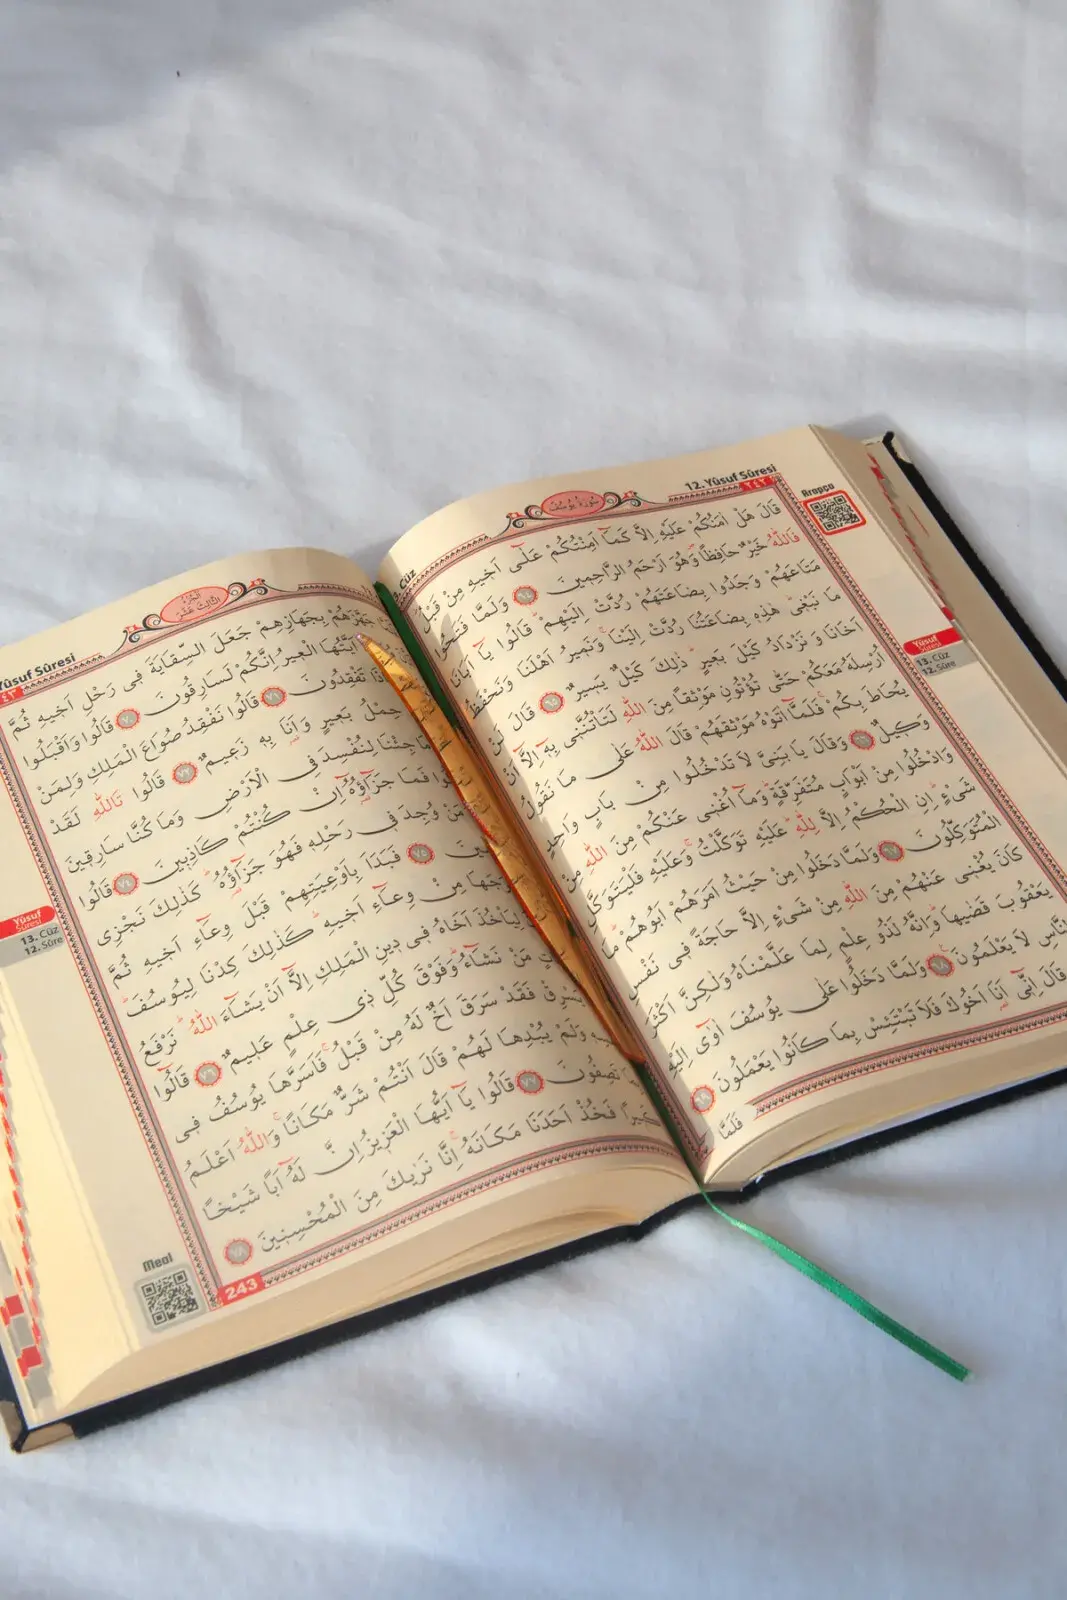 12. Yûsuf Sûresi
٢٤٢
سُورَةُ يُوسُفَ
Cüz
Arapça
قَالَ هَلْ اٰمَنُكُمْ عَلَيْهِ اِلَّا كَمَٓا اَمِنْتُكُمْ عَلٰٓى اَخٖيهِ مِنْ قَبْلُ
فَاللّٰهُ خَيْرٌ حَافِظًا وَهُوَ اَرْحَمُ الرَّاحِمٖينَ ٦٤ وَلَمَّا فَتَحُوا
مَتَاعَهُمْ وَجَدُوا بِضَاعَتَهُمْ رُدَّتْ اِلَيْهِمْ قَالُوا يَٓا اَبَانَا
مَا نَبْغٖى هٰذِهٖ بِضَاعَتُنَا رُدَّتْ اِلَيْنَا وَنَمٖيرُ اَهْلَنَا وَنَحْفَظُ
اَخَانَا وَنَزْدَادُ كَيْلَ بَعٖيرٍ ذٰلِكَ كَيْلٌ يَسٖيرٌ ٦٥ قَالَ لَنْ
اُرْسِلَهُ مَعَكُمْ حَتّٰى تُؤْتُونِ مَوْثِقًا مِنَ اللّٰهِ لَتَأْتُنَّنٖى بِهٖٓ اِلَّٓا اَنْ
يُحَاطَ بِكُمْ فَلَمَّٓا اٰتَوْهُ مَوْثِقَهُمْ قَالَ اللّٰهُ عَلٰى مَا نَقُولُ
وَكٖيلٌ ٦٦ وَقَالَ يَا بَنِيَّ لَا تَدْخُلُوا مِنْ بَابٍ وَاحِدٍ
وَادْخُلُوا مِنْ اَبْوَابٍ مُتَفَرِّقَةٍ وَمَٓا اُغْنٖى عَنْكُمْ مِنَ اللّٰهِ مِنْ
شَيْءٍ اِنِ الْحُكْمُ اِلَّا لِلّٰهِ عَلَيْهِ تَوَكَّلْتُ وَعَلَيْهِ فَلْيَتَوَكَّلِ
الْمُتَوَكِّلُونَ ٦٧ وَلَمَّا دَخَلُوا مِنْ حَيْثُ اَمَرَهُمْ اَبُوهُمْ مَا
كَانَ يُغْنٖى عَنْهُمْ مِنَ اللّٰهِ مِنْ شَيْءٍ اِلَّا حَاجَةً فٖى نَفْسِ
يَعْقُوبَ قَضٰيهَا وَاِنَّهُ لَذُو عِلْمٍ لِمَا عَلَّمْنَاهُ وَلٰكِنَّ اَكْثَرَ
النَّاسِ لَا يَعْلَمُونَ ٦٨ وَلَمَّا دَخَلُوا عَلٰى يُوسُفَ اٰوٰٓى اِلَيْهِ
قَالَ اِنّٖٓى اَنَا اَخُوكَ فَلَا تَبْتَئِسْ بِمَا كَانُوا يَعْمَلُونَ ٦٩
فَلَمَّا
Yûsuf
Sûresi
13. Cüz
12. Sûre
Yûsuf Sûresi
٢٤٣
الْجُزْءُ الثَّالِثَ عَشَرَ
جَهَّزَهُمْ بِجَهَازِهِمْ جَعَلَ السِّقَايَةَ فٖى رَحْلِ اَخٖيهِ ثُمَّ
اَيَّتُهَا الْعٖيرُ اِنَّكُمْ لَسَارِقُونَ ٧٠ قَالُوا وَاَقْبَلُوا
تَفْقِدُونَ ٧١ قَالُوا نَفْقِدُ صُوَاعَ الْمَلِكِ وَلِمَنْ
حِمْلُ بَعٖيرٍ وَاَنَا بِهٖ زَعٖيمٌ ٧٢ قَالُوا تَاللّٰهِ لَقَدْ
جِئْنَا لِنُفْسِدَ فِى الْاَرْضِ وَمَا كُنَّا سَارِقٖينَ
فَمَا جَزَٓاؤُهُٓ اِنْ كُنْتُمْ كَاذِبٖينَ ٧٤ قَالُوا
مَنْ وُجِدَ فٖى رَحْلِهٖ فَهُوَ جَزَٓاؤُهُ كَذٰلِكَ نَجْزِى
٧٥ فَبَدَاَ بِاَوْعِيَتِهِمْ قَبْلَ وِعَٓاءِ اَخٖيهِ ثُمَّ
مِنْ وِعَٓاءِ اَخٖيهِ كَذٰلِكَ كِدْنَا لِيُوسُفَ
لِيَأْخُذَ اَخَاهُ فٖى دٖينِ الْمَلِكِ اِلَّٓا اَنْ يَشَٓاءَ اللّٰهُ نَرْفَعُ
مَنْ نَشَٓاءُ وَفَوْقَ كُلِّ ذٖى عِلْمٍ عَلٖيمٌ ٧٦ قَالُٓوا
فَقَدْ سَرَقَ اَخٌ لَهُ مِنْ قَبْلُ فَاَسَرَّهَا يُوسُفُ فٖى
وَلَمْ يُبْدِهَا لَهُمْ قَالَ اَنْتُمْ شَرٌّ مَكَانًا وَاللّٰهُ اَعْلَمُ
تَصِفُونَ ٧٧ قَالُوا يَٓا اَيُّهَا الْعَزٖيزُ اِنَّ لَهُٓ اَبًا شَيْخًا
كَبٖيرًا فَخُذْ اَحَدَنَا مَكَانَهُ اِنَّا نَرٰيكَ مِنَ الْمُحْسِنٖينَ ٧٨
243
Yûsuf
Sûresi
13. Cüz
12. Sûre
Meal